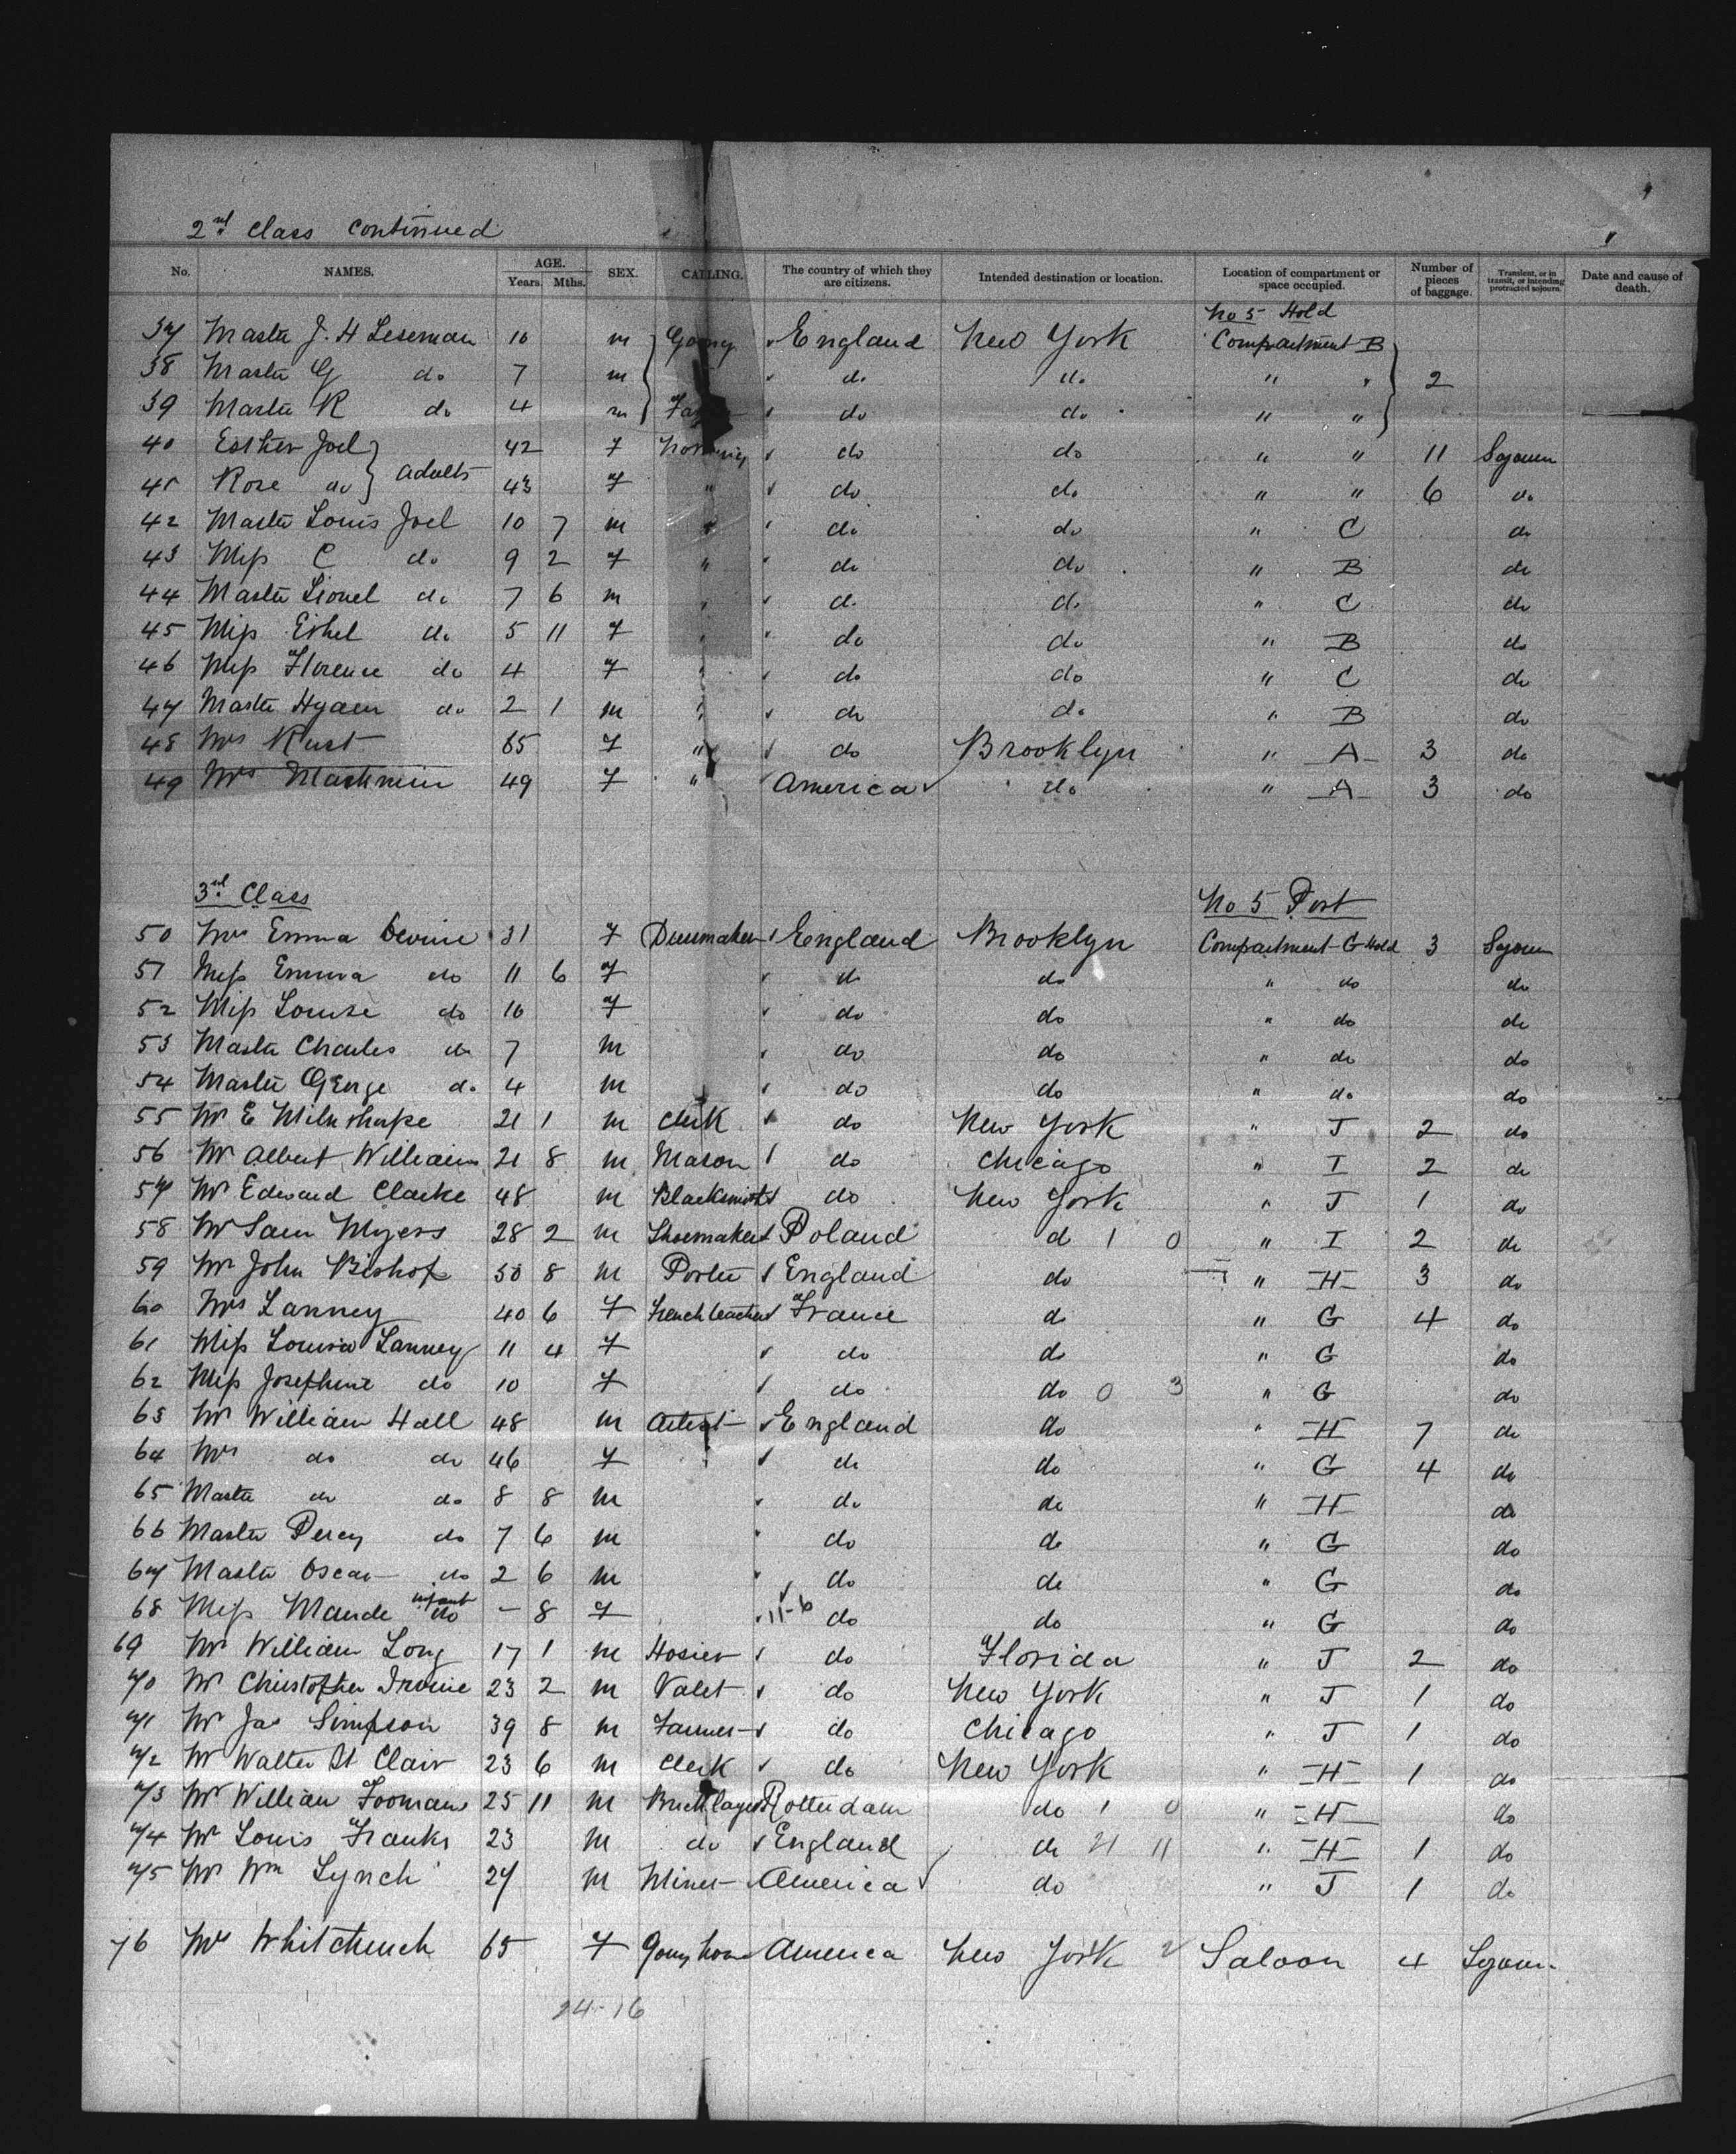 2nd Class continued
No. NAMES. AGE. Years. Mths. SEX. CALLING. The country of which they are citizens. Intended destination or location. Location of compartment or space occupied. Number of pieces of baggage. Transient, or in transit, or intending protracted sojourn. Date and cause of death.
No 5 Hold
37 Master J. H Leseman 10 m Going England New York Compartment B
38 Master G do 7 m do do " " 2
39 Master R do 4 m do do " "
40 Esther Joel 42 F Nothing do do " " 11 Sojourn
41 Rose do Adults 43 F " do do " " 6 do
42 Master Louis Joel 10 7 m " do do " C do
43 Miss C do 9 2 F " do do " B do
44 Master Lionel do 7 6 m " do do " C do
45 Miss Ethel do 5 11 F " do do " B do
46 Miss Florence do 4 F " do do " C do
47 Master Hyam do 2 1 m " do do " B do
48 Mrs Rust 65 F " do Brooklyn " A 3 do
49 Mrs 49 F " America do " A 3 do
3rd Class
No 5 Port
50 Mrs Emma Devine 31 F Dressmaker England Brooklyn Compartment G Hold 3 Sojourn
51 Miss Emma do 11 6 F do do " do do
52 Miss Louise do 10 F do do " do do
53 Master Charles do 7 m do do " do do
54 Master George do 4 m do do " do do
55 Mr E 21 1 m Clerk do New York " J 2 do
56 Mr Albert Williams 21 8 m Mason do Chicago " I 2 do
57 Mr Edward Clarke 48 m Blacksmith do New York " J 1 do
58 Mr Sam Myers 28 2 m Shoemaker Poland d 1 0 " I 2 do
59 Mr John Bishop 50 8 m Porter England do " H 3 do
60 Mrs Lanney 40 6 F French teacher France do " G 4 do
61 Miss Louisa Lanney 11 4 F do do " G do
62 Miss Josephine do 10 F do do 0 3 " G do
63 Mr William Hall 48 m Artist England do " H 7 do
64 Mrs do do 46 F do do " G 4 do
65 Master do do 8 8 m do do " H do
66 Master Percy do 7 6 m do do " G do
67 Master Oscar do 2 6 m do do " G do
68 Miss Maude infant do - 8 F 11-6 do do " G do
69 Mr William Long 17 1 m Hosier do Florida " J 2 do
70 Mr Christopher Irvine 23 2 m Valet do New York " J 1 do
71 Mr Jas Simpson 39 8 m Farmer do Chicago " J 1 do
72 Mr Walter St Clair 23 6 m Clerk do New York " H 1 do
73 Mr William Foomans 25 11 m Bricklayer Rotterdam do 1 0 " H do
74 Mr Louis Franks 23 m do England do 21 11 " H 1 do
75 Mr Wm Lynch 27 m Miner America do " J 1 do
76 Mrs Whitchurch 65 F Going home America New York Saloon 4 Sojourn
24-16